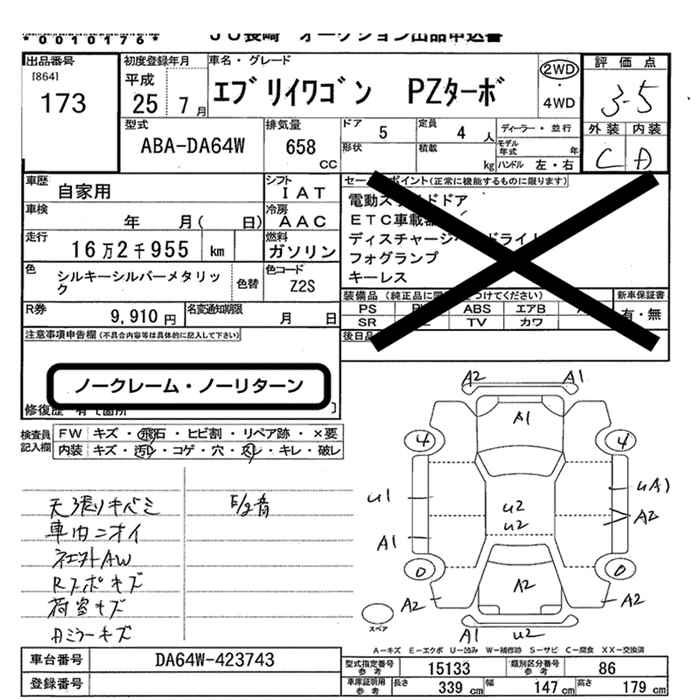 *0010176*
JU長崎 オークション出品申込書
出品番号
[864]
173
初度登録年月
平成
25年7月
車名・グレード
エブリイワゴン PZターボ
2WD
・
4WD
評価点
3.5
外装 内装
C D
型式
ABA-DA64W
排気量
658
CC
ドア 5
定員 4人
形状
積載 kg
ディーラー・並行
モデル年式 年
ハンドル 左・右
車歴
自家用
シフト
IAT
車検
年 月( 日)
冷房
AAC
走行
16万2千955 km
燃料
ガソリン
色
シルキーシルバーメタリック
色替
色コード
Z2S
R券
9,910円
名変通知期限
月 日
セールスポイント(正常に機能するものに限ります)
電動スライドドア
ETC車載器
ディスチャージヘッドライト
フォグランプ
キーレス
装備品
つけてください)
新車保証書
有・無
PS
ABS
エアB
SR
TV
カワ
後日
注意事項申告欄(不具合内容等は具体的に記入して下さい)
ノークレーム・ノーリターン
修復歴
検査員記入欄
FW キズ・飛石・ヒビ割・リペア跡・×要
内装 キズ・汚レ・コゲ・穴・スレ・キレ・破レ
天張りキバミ
車内ニオイ
社外AW
Rスポキズ
荷室キズ
Aミラーキズ
A2
A1
A1
4
4
U1
UA1
U2
U2
A2
A1
0
0
A2
A2
A2
A1
U2
スペア
A-キズ E-エクボ U-凹み W-補修跡 S-サビ C-腐食 XX-交換済
車台番号
DA64W-423743
登録番号
型式指定番号
参考
15133
類別区分番号
参考
86
車庫証明用
参考
長さ 339 cm
幅 147 cm
高さ 179 cm